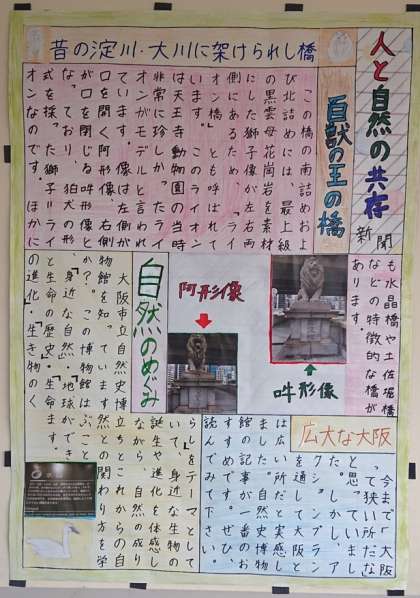 人と自然の共存
新聞
昔の淀川・大川に架けられし橋
百獣の王の橋
この橋の南詰めおよ
び北詰めには、最上級
の黒雲母花崗岩を素材
にした獅子像が左右両
側にあるため、「ライ
オン橋」とも呼ばれて
います。このライオン
は天王寺動物園の当時
非常に珍しかったライ
オンがモデルと言われ
ています。像は左側が
口を開く阿形像、右側
が口を閉じる吽形像と
なっており、狛犬の形
式を採った獅子(ライ
オン)なのです。ほかに
も水晶橋や土佐堀橋
などの特徴的な橋が
あります。
阿形像
吽形像
自然のめぐみ
大阪市立自然史博
物館を知っています
か?この博物館は
「身近な自然」「地球
と生命の歴史」「生命
の進化」「生き物のく
ら
し」をテーマとして
いて、身近な生物の
誕生や進化を体感し
ながら、自然の成り
立ちとこれからの自
然との関わり方を学
ぶことができます。
広大な大阪
今まで「大阪
って狭い所だな」
と思っていまし
たが、ア
クションプラン
を通して大阪
は広い所だと実感し
ました。自然史博物
館の記事が一番のお
すすめです。ぜひ、
読んでみて下さい。